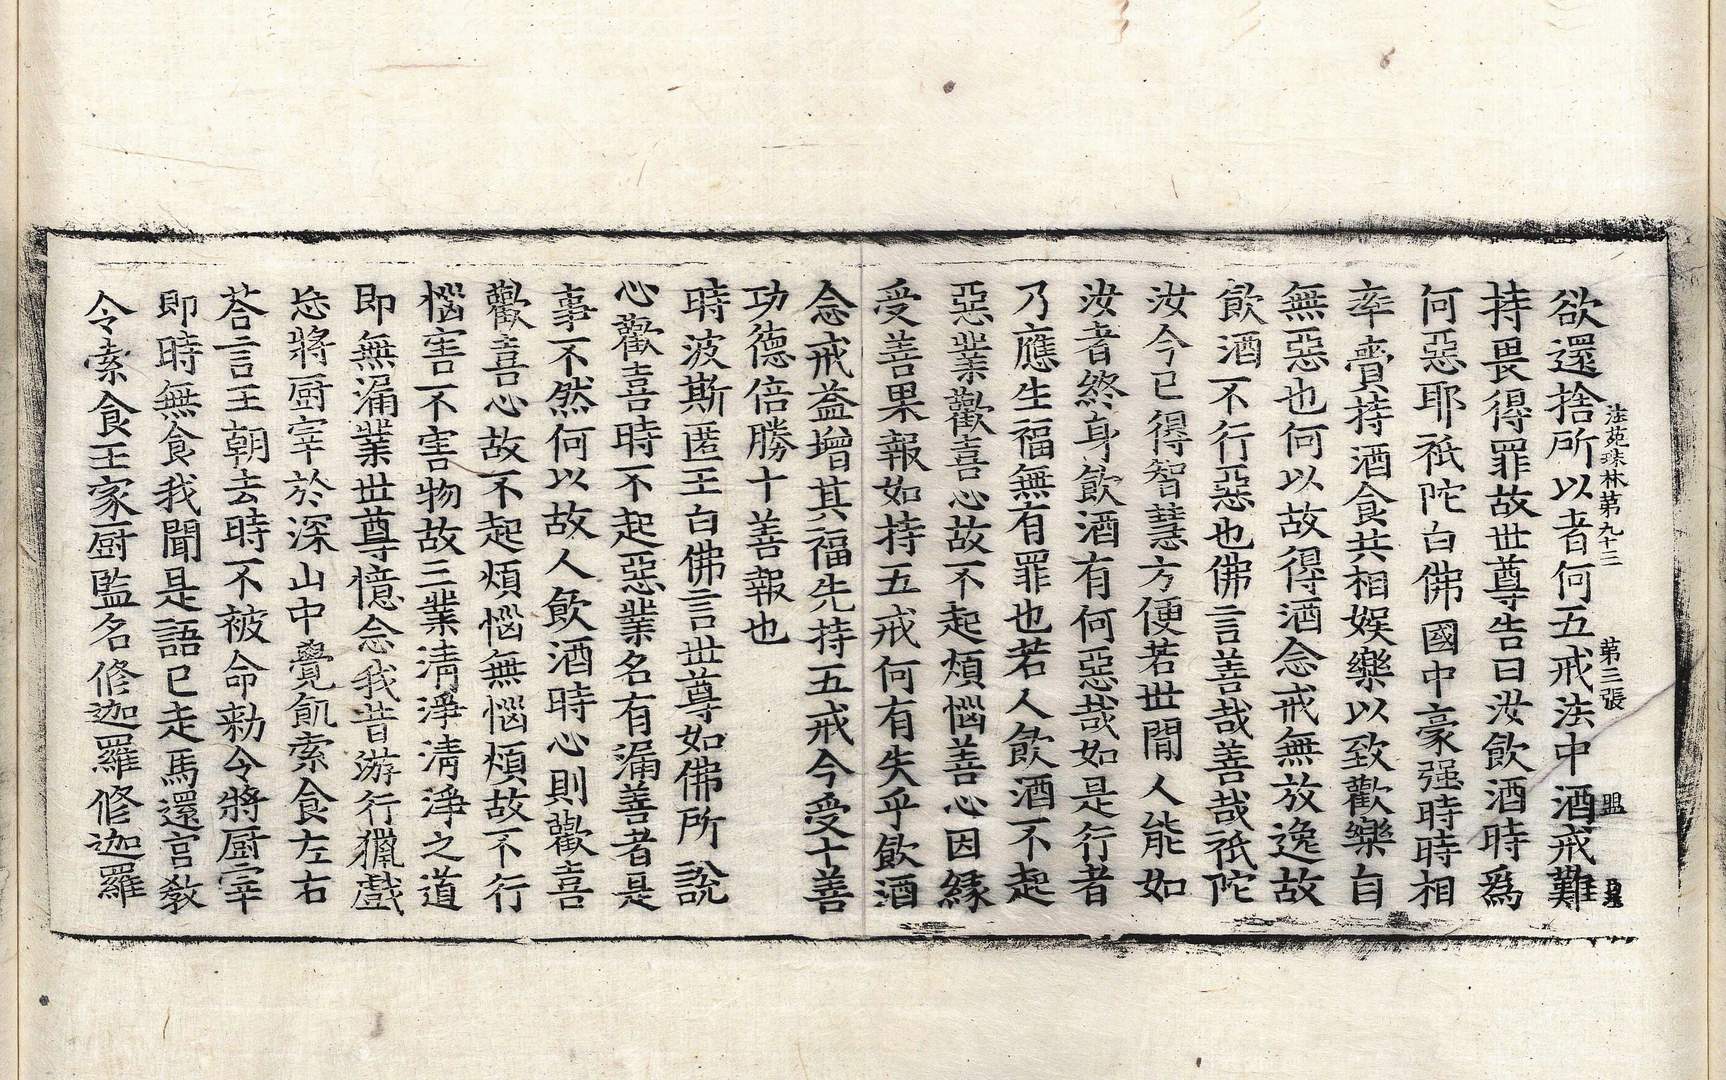 法苑珠林第九十三　第三張　盟
欲還捨所以者何五戒法中酒戒難
持畏得罪故世尊告曰汝飲酒時爲
何惡耶祇陀白佛國中豪强時時相
率賷持酒食共相娛樂以致歡樂自
無惡也何以故得酒念戒無放逸故
飲酒不行惡也佛言善哉善哉祇陀
汝今已得智慧方便若世閒人能如
汝者終身飲酒有何惡哉如是行者
乃應生福無有罪也若人飲酒不起
惡業歡喜心故不起煩惱善心因緣
受善果報如持五戒何有失乎飲酒
念戒益增其福先持五戒今受十善
功德倍勝十善報也
時波斯匿王白佛言世尊如佛所說
心歡喜時不起惡業名有漏善者是
事不然何以故人飲酒時心則歡喜
歡喜心故不起煩惱無惱煩故不行
惱害不害物故三業清淨清淨之道
即無漏業世尊憶念我昔游行獵戲
忘將厨宰於深山中覺飢索食左右
荅言王朝去時不被命勑令將厨宰
即時無食我聞是語已走馬還宮敎
令索食王家厨監名修迦羅修迦羅